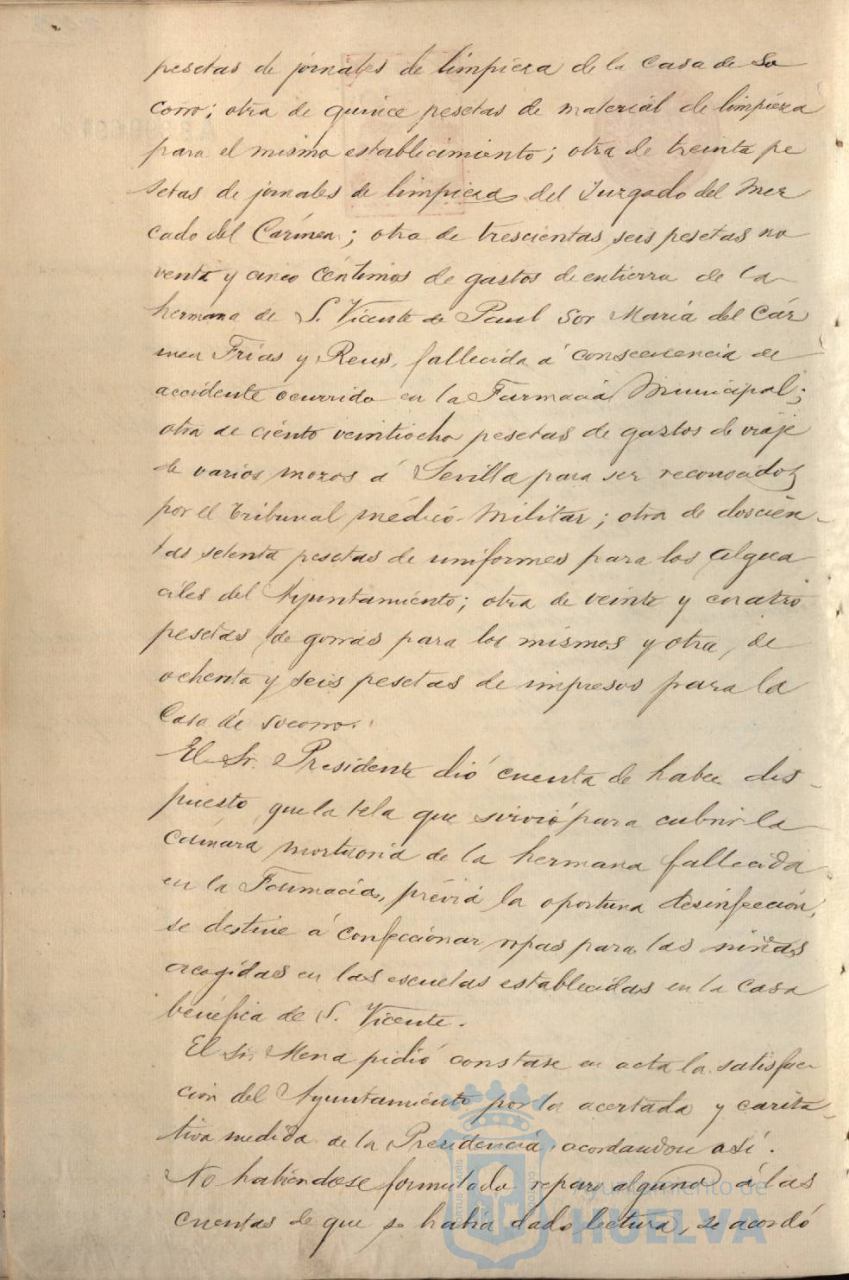 pesetas de jornales de limpieza de la Casa de So
corro; otra de quince pesetas de material de limpieza
para el mismo establecimiento; otra de treinta pe
setas de jornales de limpieza del Juzgado del Mer
cado del Cármen; otra de trescientas seis pesetas no
venta y cinco céntimos de gastos de entierro de la
hermana de S. Vicente de Paul Sor María del Cár
men Frías y Reus, fallecida á consecuencia de
accidente ocurrido en la Farmacia Municipal;
otra de ciento veintiocho pesetas de gastos de viaje
de varios mozos á Sevilla para ser reconocidos
por el Tribunal médico Militar; otra de doscien-
tas setenta pesetas de uniformes para los algua
ciles del Ayuntamiento; otra de veinte y cuatro
pesetas de gorras para los mismos y otra, de
ochenta y seis pesetas de impresos para la
Casa de socorro.
El Sr. Presidente dió cuenta de haber dis-
puesto que la tela que sirvió para cubrir la
cámara mortuoria de la hermana fallecida
en la Farmacia, prévia la oportuna desinfección,
se destine á confeccionar ropas para las niñas
acogidas en las escuelas establecidas en la casa
benéfica de S. Vicente.
El Sr. Mena pidió constase en acta la satisfac
ción del Ayuntamiento por la acertada y carita-
tiva medida de la Presidencia, acordandose así.
No habiéndose formulado reparo alguno á las
cuentas de que se habia dado lectura, se acordó
Ayuntamiento de
HUELVA